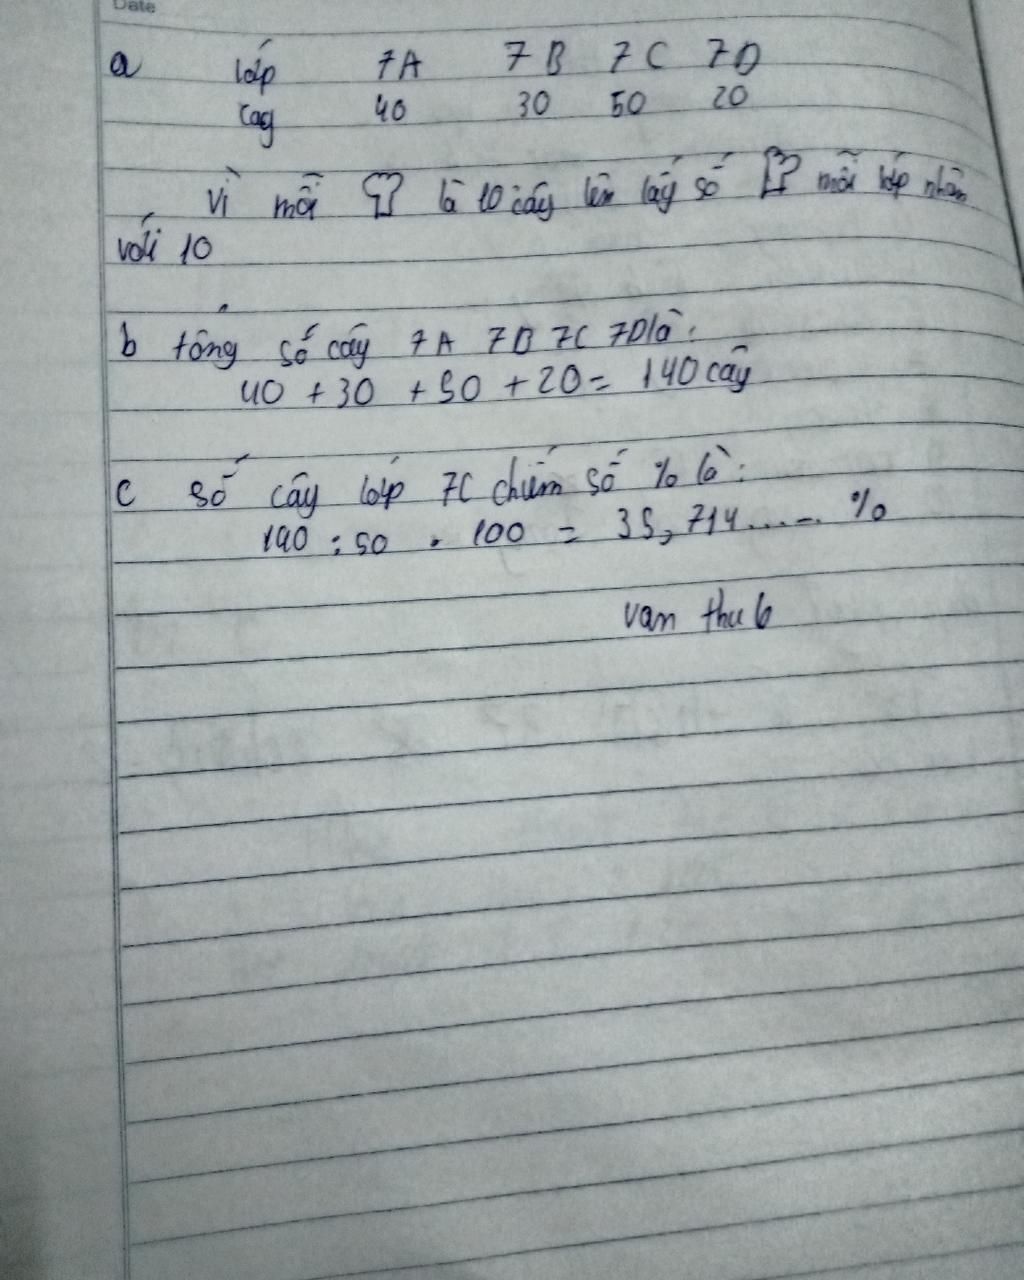 Date
a lớp 7A 7B 7C 7D
cây 40 30 50 20
Vì mỗi là 10 cây lên lấy số mỗi lớp nhân
với 10
b tổng số cây 7A 7B 7C 7D là:
40 + 30 + 50 + 20 = 140 cây
c số cây lớp 7C chiếm số % là:
140 : 50 . 100 = 35,714..... %
van thu 6